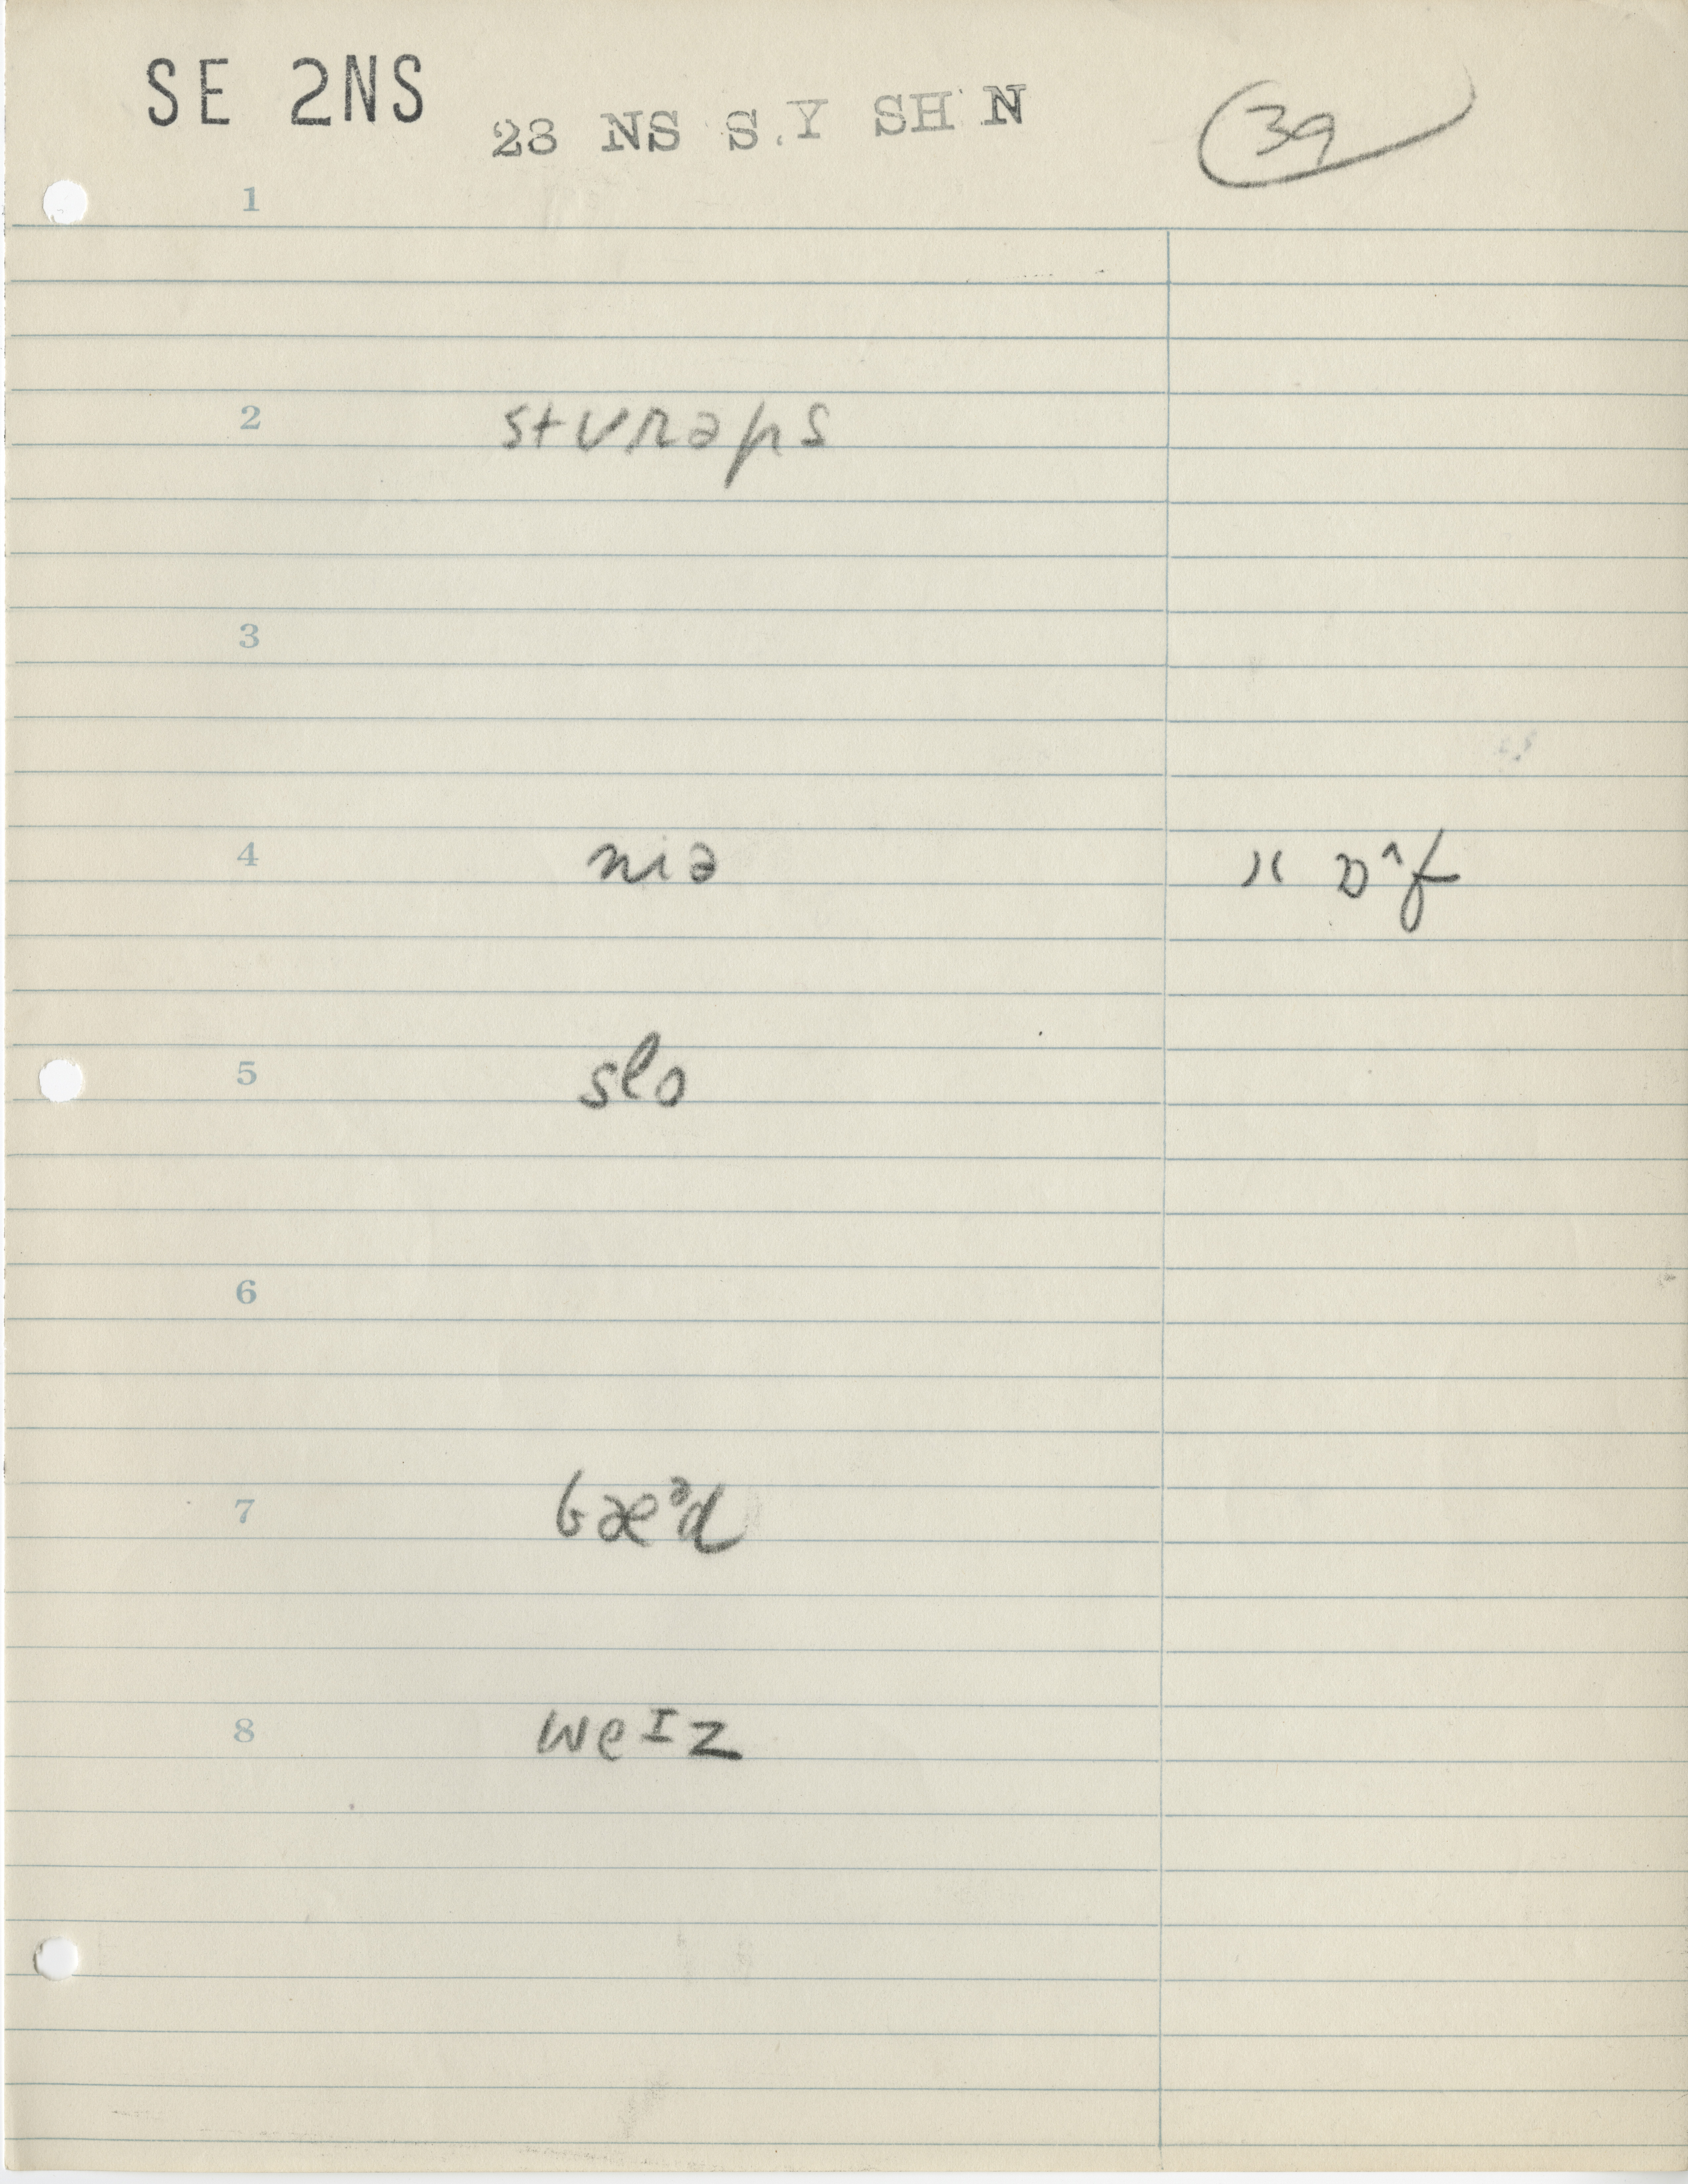 SE 2NS
23 NS S.Y SH N
39
1
2 stʊrəps
3
4 niə " ɒ^f
5 slo
6
7 bæᵊd
8 weɪz